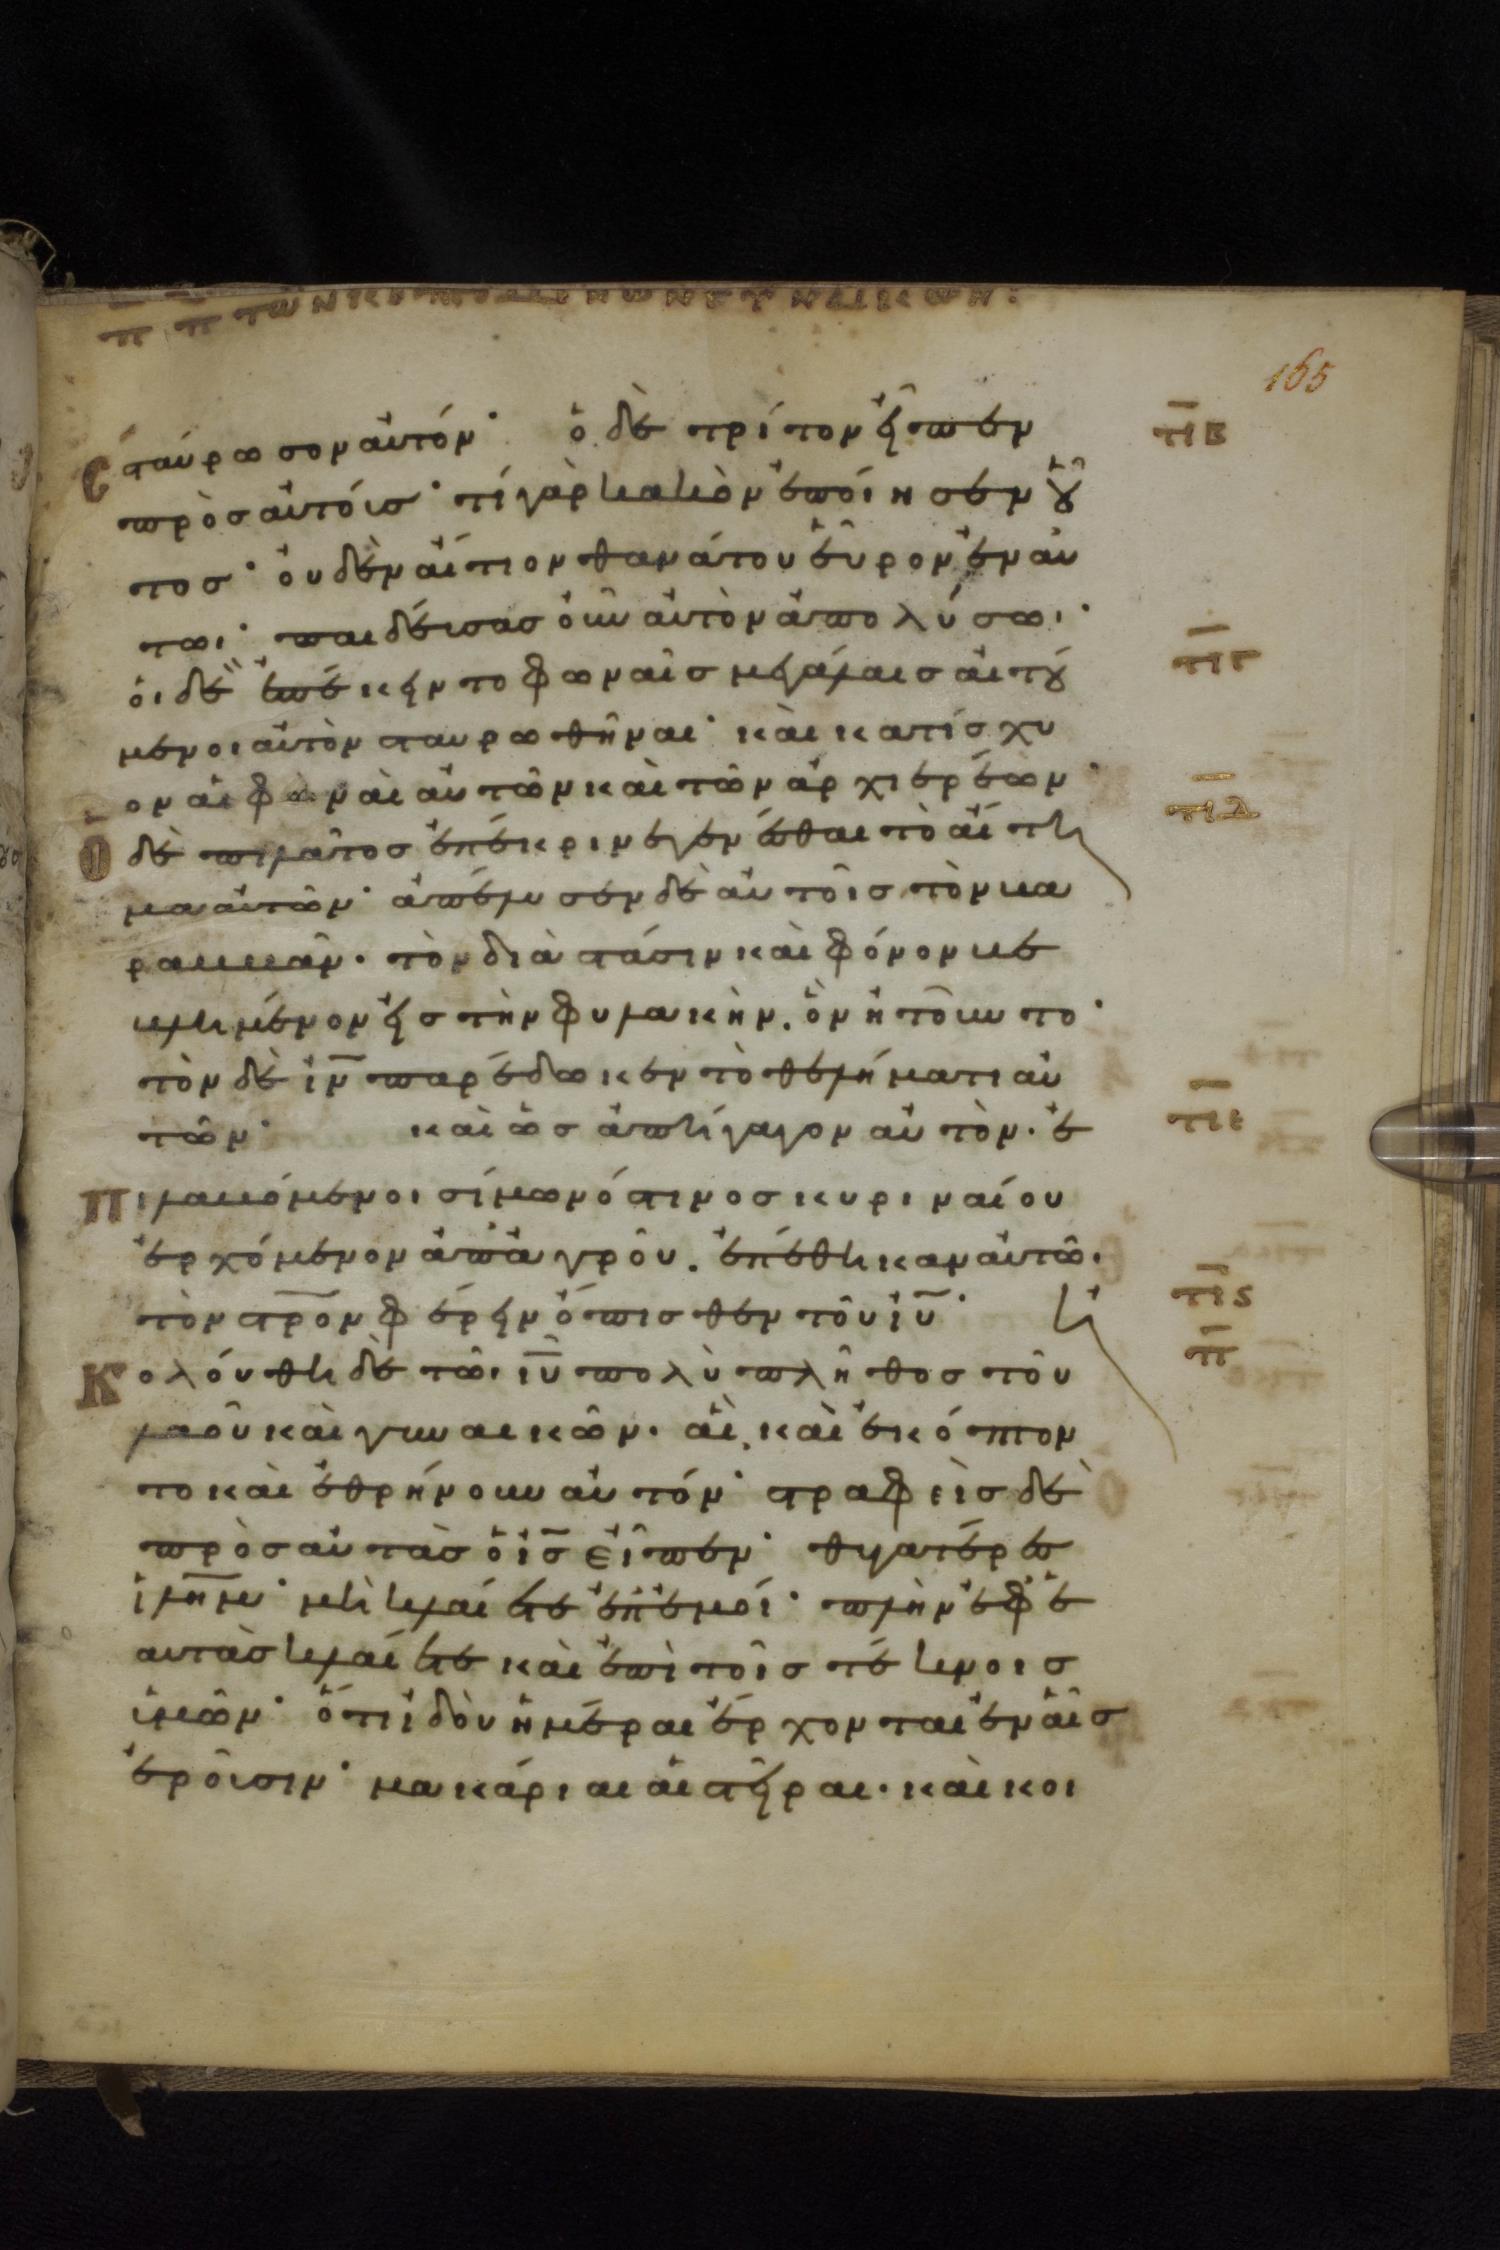 π̅ π̅ τῶν κοπτομένων γυναικῶν:
165
σταύρωσον αὐτόν· ὁ δὲ τρίτον εἶπεν
π̅β̅
πρὸς αὐτόυς· τί γὰρ κακὸν ἐποίησεν οὗ
τος· ὀυδὲν ἄιτιον θανάτου ἑῦρον ἐν αὐ
τωι· παιδέυσας ὀῦν ἀυτὸν ἀπολύσωι·
π̅γ̅
ὁι δὲ ἐπέκειντο φωναῖς μεγάλαις αἰτού
μενοι αὐτὸν σταυρωθῆναι· καὶ κατίσχυ
ον αἱ φωναὶ αὐτῶν καὶ τῶν ἀρχιερέων·
π̅δ̅
Ὁ δὲ πιλᾶτος ἐπέκρινε γενέσθαι τὸ ἄιτη
μα αὐτῶν· ἀπέλυσεν δὲ αὐτοῖς τὸν βα
ραββᾶν· τὸν διὰ στάσιν καὶ φόνον βε
βλημένον εἰς τὴν φυλακὴν. ὃν ἠτοῦντο·
τὸν δὲ ι̅ν̅ παρέδωκεν τὸ θελήματι αὐ
τῶν· καὶ ὡς ἀπήγαγον αὐτὸν· ἐ
π̅ε̅
πιλαβόμενοι σίμωνό στινος κυριναίου
ἐρχόμενον ἀπ' ἀγρôυ. ἐπέθηκαν αὐτῶ·
τὸν σ̅τ̅ρ̅ον φέρειν ὄπισθεν τοῦ ι̅υ̅· ἠ
π̅ς̅
π̅
κολόυθη δὲ τῶι ι̅υ̅ πολὺ πλῆθος τοῦ
λαοῦ καὶ γυναικῶν· αἳ καὶ ἐκόπτον
το καὶ ἐθρήνουν αὐτόν· στραφεὶς δὲ
πρὸς αὐτὰς ὁ ι̅ς̅ εἶπεν· θυγατέρες
ι̅λ̅η̅μ̅· μὴ κλαίετε ἐπ' ἐμοί· πλὴν ἐφ' ἑ
αυτὰς κλαίετε καὶ ἐπὶ τοῖς τέκνοις
ὑμῶν· ὅτι ἰδὸυ ἡμέραι ἔρχονται ἐν αἷς
ἐροῦσιν· μακάριαι αἱ στεῖραι· καὶ κοι